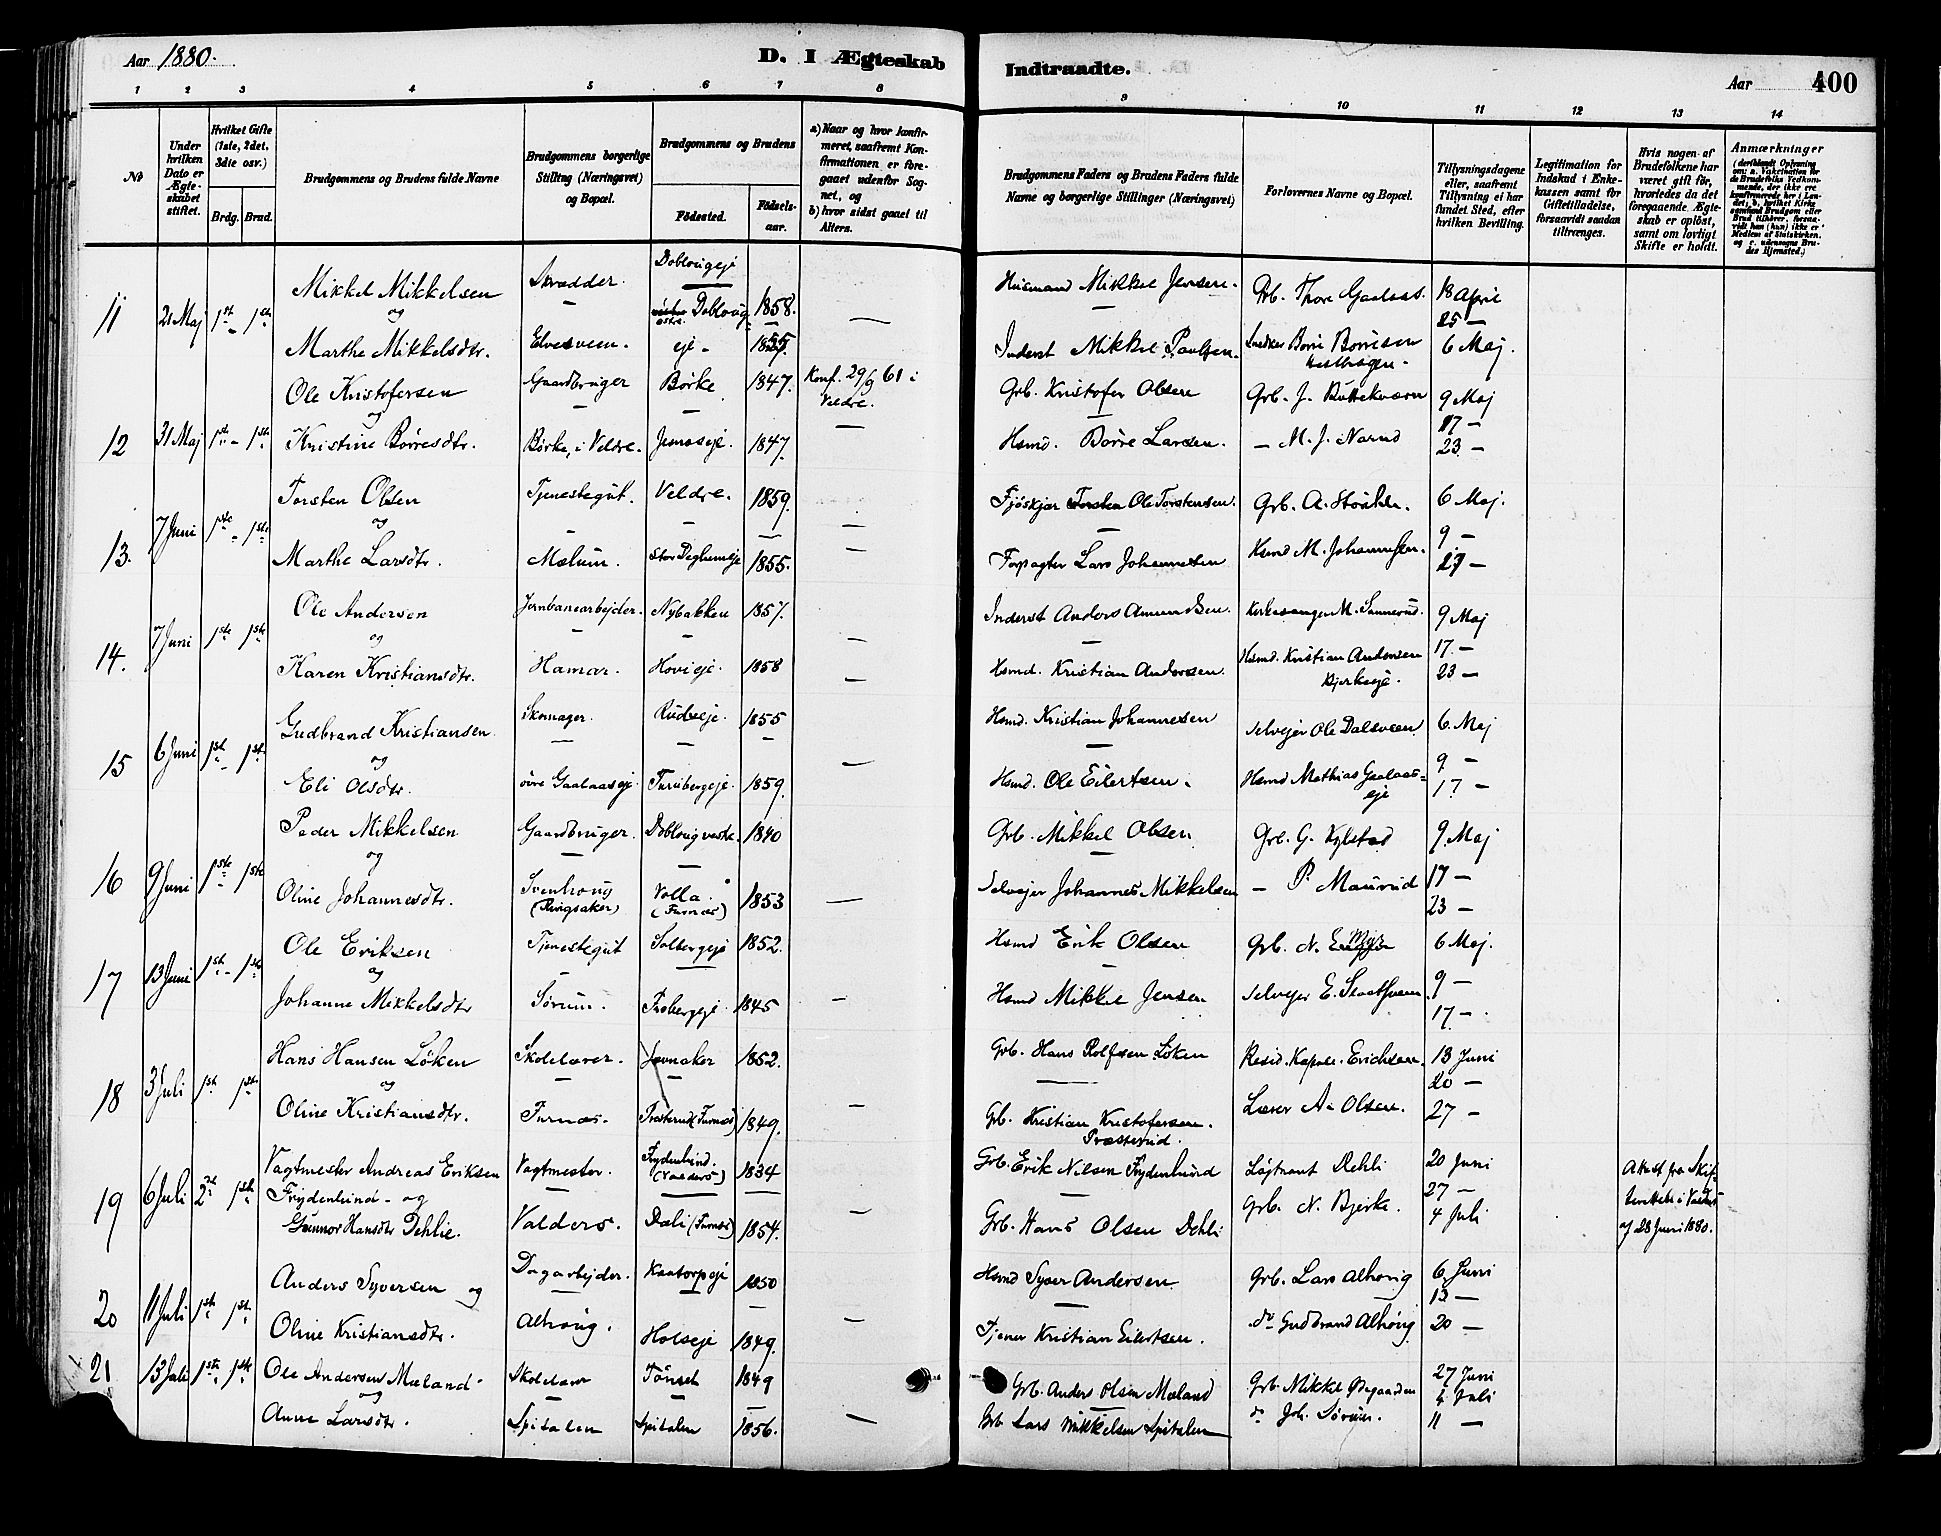 Aar 1880.
D. I Ægteskab Indtraadte.
Aar 400
1 2 3 4 5 6 7 8 9 10 11 12 13 14
No
Under hvilken Dato er Ægteskabet stiftet.
Hvilket Gifte (1ste, 2det, 3die osv.)
Brdg. Brud.
Brudgommens og Brudens fulde Navne
Brudgommens borgerlige Stilling (Næringsvei) og Bopæl.
Brudgommens og Brudens
Fødested. Fødselsaar.
a) Naar og hvor konfirmeret, saafremt Konfirmationen er foregaaet udenfor Sognet, og
b) hvor sidst gaaet til Alters.
Brudgommens Faders og Brudens Faders fulde Navne og borgerlige Stillinger (Næringsvei)
Forlovernes Navne og Bopæl.
Tillysningsdagene eller, saafremt Tillysning ei har fundet Sted, efter hvilken Bevilling.
Legitimation for Indskud i Enkekassen samt for Giftetilladelse, forsaavidt saadan tiltrænges.
Hvis nogen af Brudefolkene har været gift før, hvorledes da det foregaaende Ægteskab er opløst, samt om lovligt Skifte er holdt.
Anmærkninger
11 21 Maj 1ste - 1ste Mikkel Mikkelsen Skrædder. Doblougeje 1858. Husmand Mikkel Jensen. Grb. Thore Gaalaas. 18 April
og 25 —
Marthe Mikkelsdtr. Elvesveen. østre Doblougeje 1855 Inderst Mikkel Paulsen. Snedker Børre Børresen 6 Maj.
12 31 Maj 1ste - 1ste Ole Kristofersen Gaardbruger Børke 1847. Konf. 29/9 61 i Veldre. Grb. Kristofer Olsen Grb. J. Buttekværn 9 Maj
og 17 —
Kristine Børresdtr. Børke, i Veldre. Jemseje. 1847. Hsmd. Børre Larsen. — M. J. Narud 23 —
13. 7 Juni 1ste - 1ste Torsten Olsen Tjenestegut. Veldre. 1859. Fjøskjar Ole Torstensen. Grb. A. 6 Maj.
og 9 —
Marthe Larsdtr. Mælum. Stor Deglumeje 1855. Forpagter Lars Johannesen Hsmd M. Johannessen. 23 —
14. 7 Juni 1ste 1ste Ole Andersen Jernbanearbejder. Nybakken 1857. Inderst Anders Amundsen. Kirkesanger M. Sannerud. 9 Maj
og 17. —
Karen Kristiansdtr. Hamar. Hovieje. 1858 Hsmd. Kristian Andersen. Hsmd. Kristian Andersen Bjerkeeje. 23 —
15 6 Juni 1ste - 1ste Gudbrand Kristiansen Skomager. Rudseje. 1855 Hsmd. Kristian Johannesen Selvejer Ole Dalsveen 6. Maj
og 9 —
Eli Olsdtr. øvre Gaalaaseje Furubergeje. 1859. Hsmd. Ole Eilertsen. Hsmd Mathias Gaalaaseje 17 —
16 9 Juni 1ste - 1ste Peder Mikkelsen Gaardbruger. Doblougvestre. 1840 Grb. Mikkel Olsen Grb. G. Kylstad 9. Maj
og 17 —
Oline Johannesdtr. Svenhoug (Ringsaker) Volla. (Furnæs) 1853 Selvejer Johannes Mikkelsen — P. Maurud 23 —
17 13 Juni 1ste - 1ste Ole Eriksen Tjenestegut Solbergeje 1852. Hsmd Erik Olsen Grb. N. 6 Maj.
og 9 —
Johanne Mikkelsdtr Sørum. Frobergeje 1845 Hsmd Mikkel Jensen Selvejer E. 17. —
18 3 Juli 1ste 1ste Hans Hansen Løken Skolelærer. Jevnaker 1852. Grb. Hans Rolfsen Løken Resid. Kapel. Erichsen. 13 Juni
og 20 —
Oline Kristiansdtr. Furnæs. Præsterud (Furnæs) 1849. Grb. Kristian Kristofersen Præsterud. Lærer A. Olsen. 27 —
19 6 Juli 2den 1ste Vagtmester Andreas Eriksen Vagtmester. Frydenlund. (Valders) 1834 Grb. Erik Nilsen Frydenlund Løjtnant Dehli 20 Juni Attest fra Skifteretten i Valders af 28 Juni 1880.
Frydenlund - og 27 —
Gunnor Hansdtr Dehlie. Valders. Dæli (Furnæs) 1854. Grb. Hans Olsen Dehli Grb. N. Bjerke. 4 Juli
20 11 Juli 1ste 1ste Anders Syversen og Dagarbejder. Kaatorpeje 1850 Hsmd Syver Andersen Grb. Lars Alhoug 6 Juni
13 —
Oline Kristiansdtr. Alhoug. Holseje 1849. Tjener Kristian Eilertsen. do Gudbrand Alhoug 20 —
21 13 Juli 1ste 1ste Ole Andersen Mæland Skolelærer Tönset 1849 Grb. Anders Olsen Mæland Grb. Mikkel Øvgaarden 27 Juni
og 4 Juli
Anne Larsdtr. Spitalen Spitalen 1856. Grb Lars Mikkelsen Spitalen do Joh. Sörum. 11 —